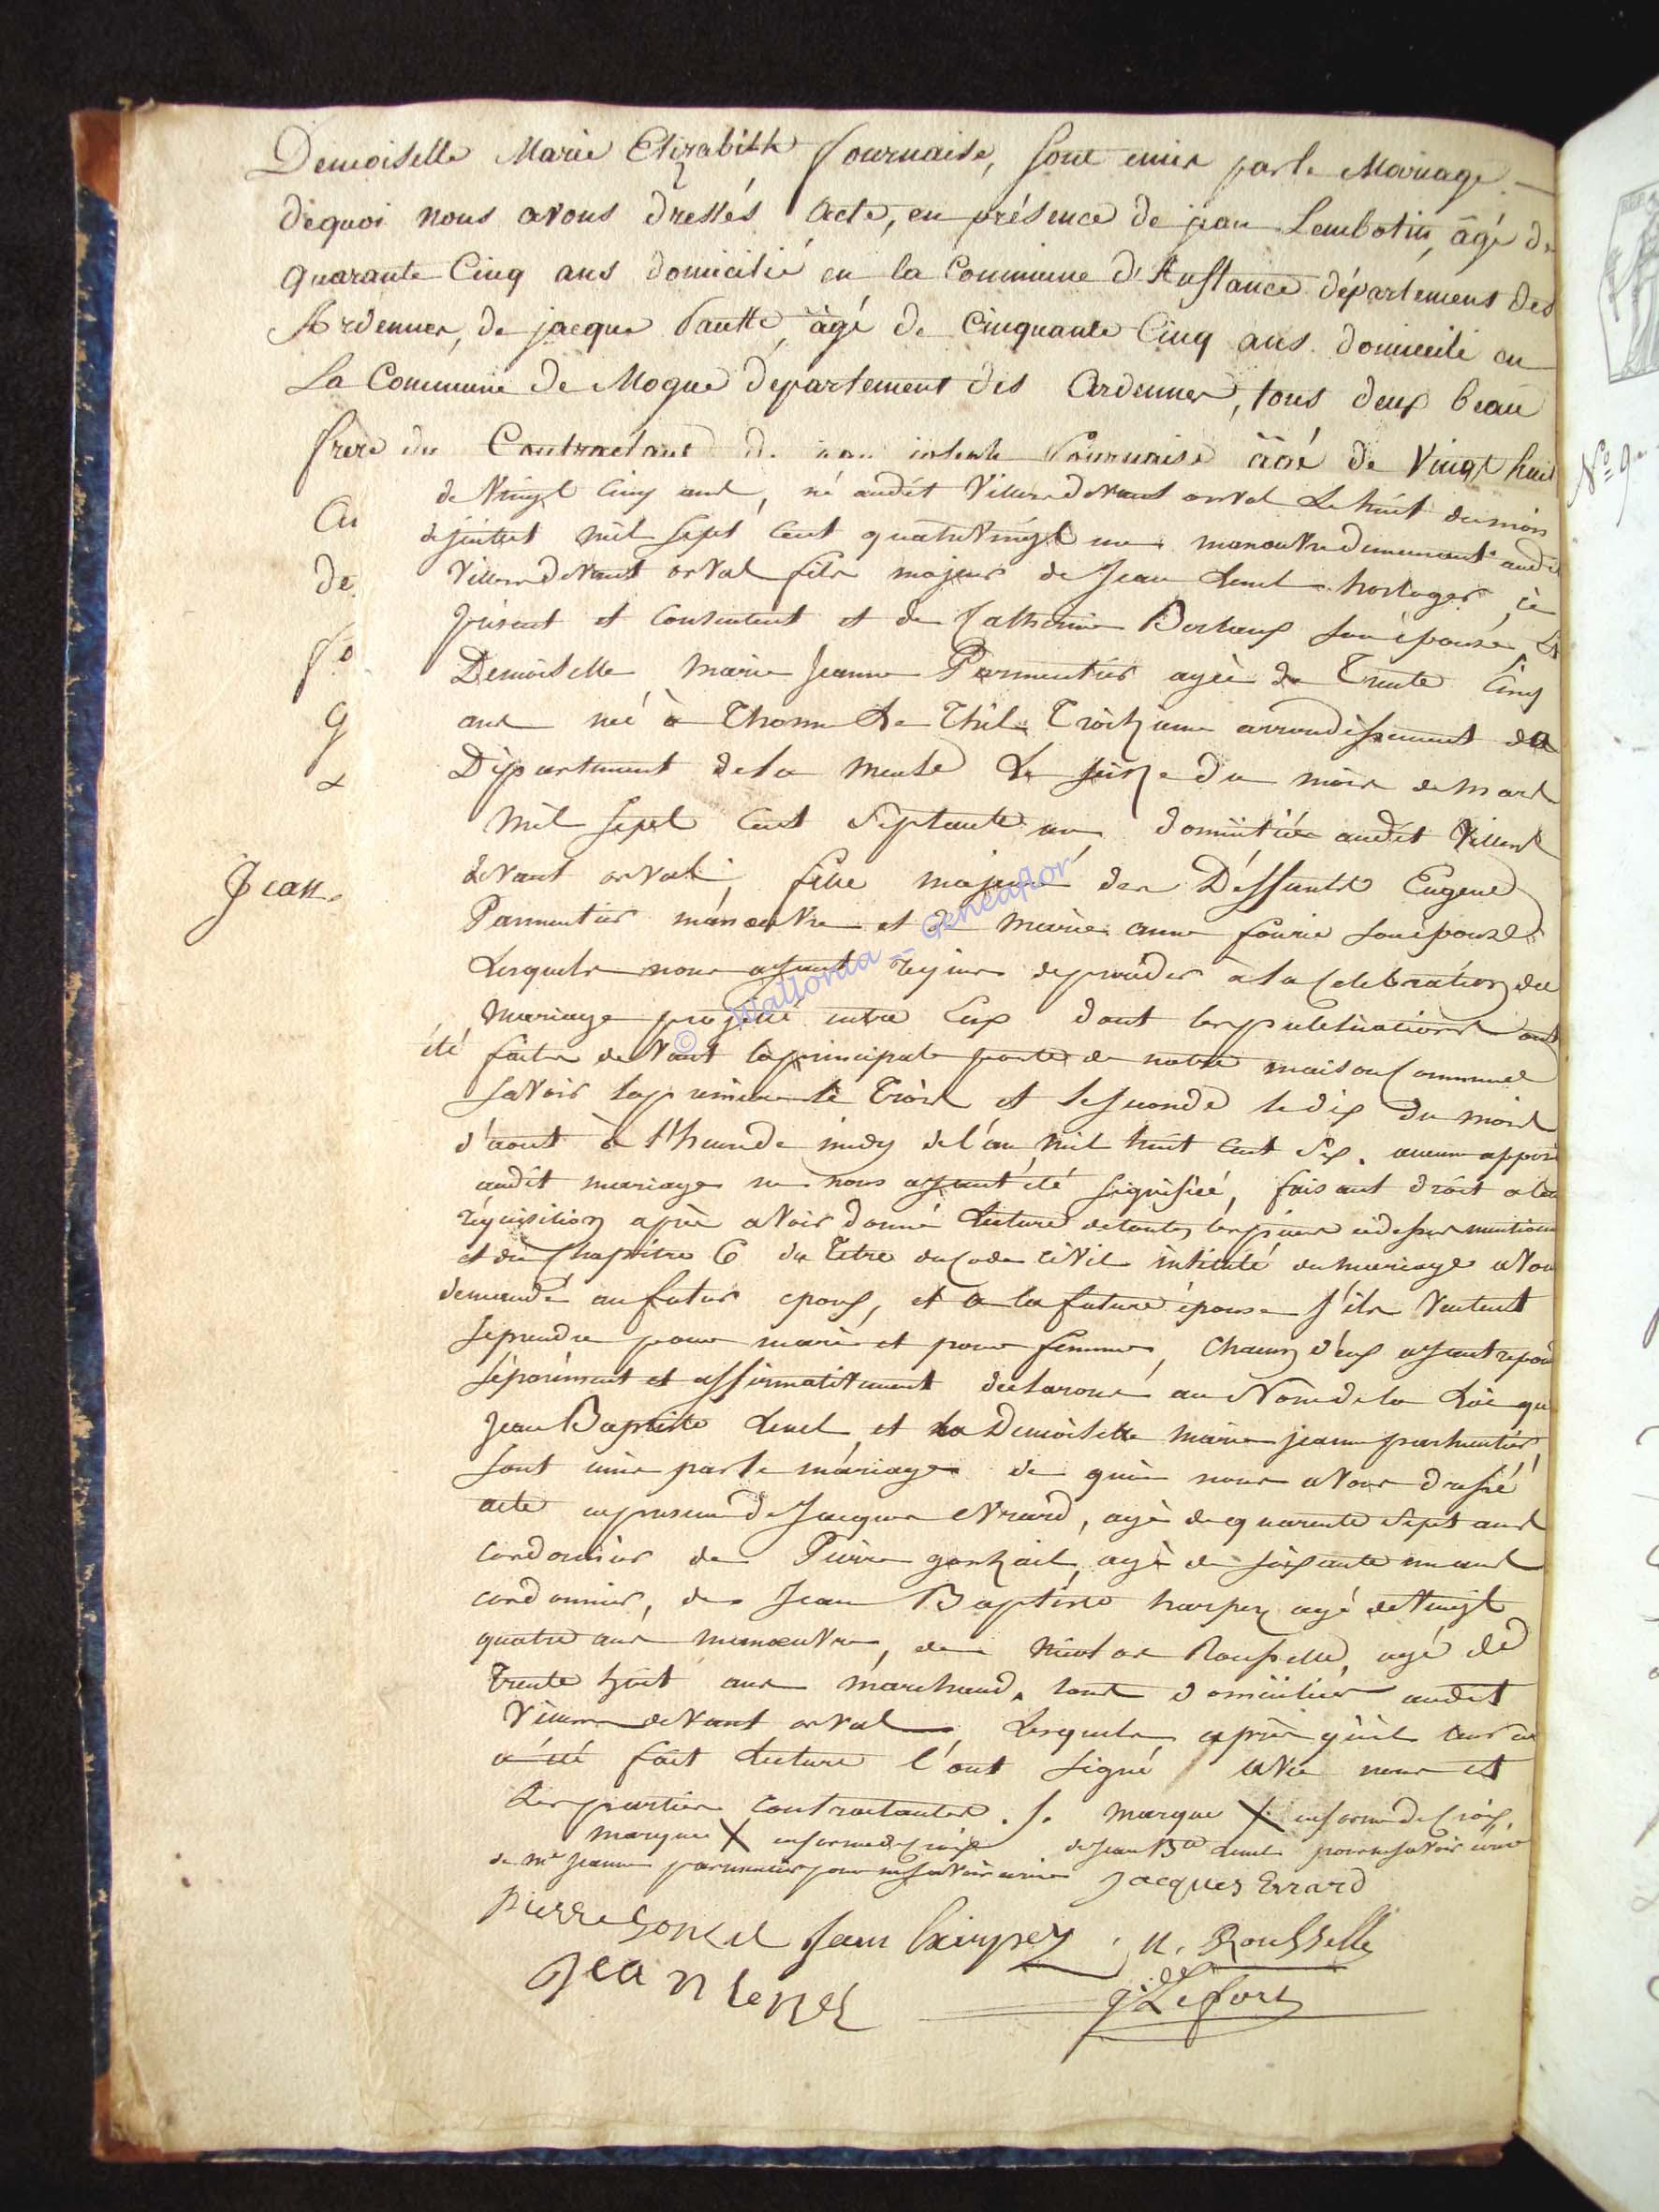 Demoiselle Marie Elizabith fournaise, sont unis par le Mariage.
dequoi nous avons dressés Acte, en présence de jean Lambotin, âgé de
quarante Cinq ans domicilié en la Commune d'Auflance département des
Ardennes, de jacque âgé de Cinquante Cinq ans domicilié en
La Commune de Mogue département des Ardennes, tous deux beau
frere du Contractant de fournaise âgé de Vingt huit
de Vingt Cinq ans, né audit Villers devant orval Le huit du mois
de juillet mil sept Cent quatre Vingt un manouvre demeurant audit
Villers devant orval fils majeur de Jean Lenel horloger ce
présent et Consentent et de Catherine son épouse, Et
Demoiselle Marie Jeanne Parmentier agée de Trente Cinq
ans neé à Thonne Le Thil Troizieme arrondissement du
Département de la Meuse Le seize du mois de Mars
Mil sept Cent Septante un domiciliée audit Villers
devant orval, fille majeure des Déffunts Eugene
Parmentier manoeuvre et de Marie anne son épouse
Lesquels nous ayant requis de procéder à la Celebration du
Mariage projetté entre Eux dont les publications ont
été faites devant la principale porte de notre maison Commune
savoir la premiere le Trois et la seconde le dix du mois
d'aout à l'heure de midy de l'an Mil huit Cent Six. aucune opposi
audit mariage ne nous ayant été signifiée, faisant droit a leur
réquisition après avoir donné lecture de toutes les pieces cidessus mention
et du Chapitre 6 du Titre du Code Civil intitulé du mariage avons
demandé au futur epoux, et a la future épouse s'ils veulent
se prendre pour mari et pour femme, Chacun d'eux ayant repon
séparément et affirmativement declarons au Nom de la Loi que
Jean Baptiste Lenel et la Demoiselle Marie jeanne parmentier
sont unis par le mariage de quoi nous avons dressé
acte en presence de Jacques Evrard, agé de quarente sept ans
cordonnier de Pierre agé de soixante un ans
cordonnier, de Jean Baptiste agé de Vingt
quatre ans manoeuvre, de Nicolas Rousselle, agé de
Trente huit ans marchand, tous domiciliés audit
Villers devant orval, Lesquels après qu'il leur en
a été fait lecture l'ont signé avec nous et
Les parties contractantes. marque X en forme de Croix
marque X en forme de Croix de Jean Bte Lenel pour ne savoir écrire
de Mie Jeanne parmentier pour ne savoir écrire Jacques Evrard
pierre Jean N. Rousselle
Jean lenel Lefort
Cu
de
fo
g
Jean
No 9e
© Wallonia - Geneaflor